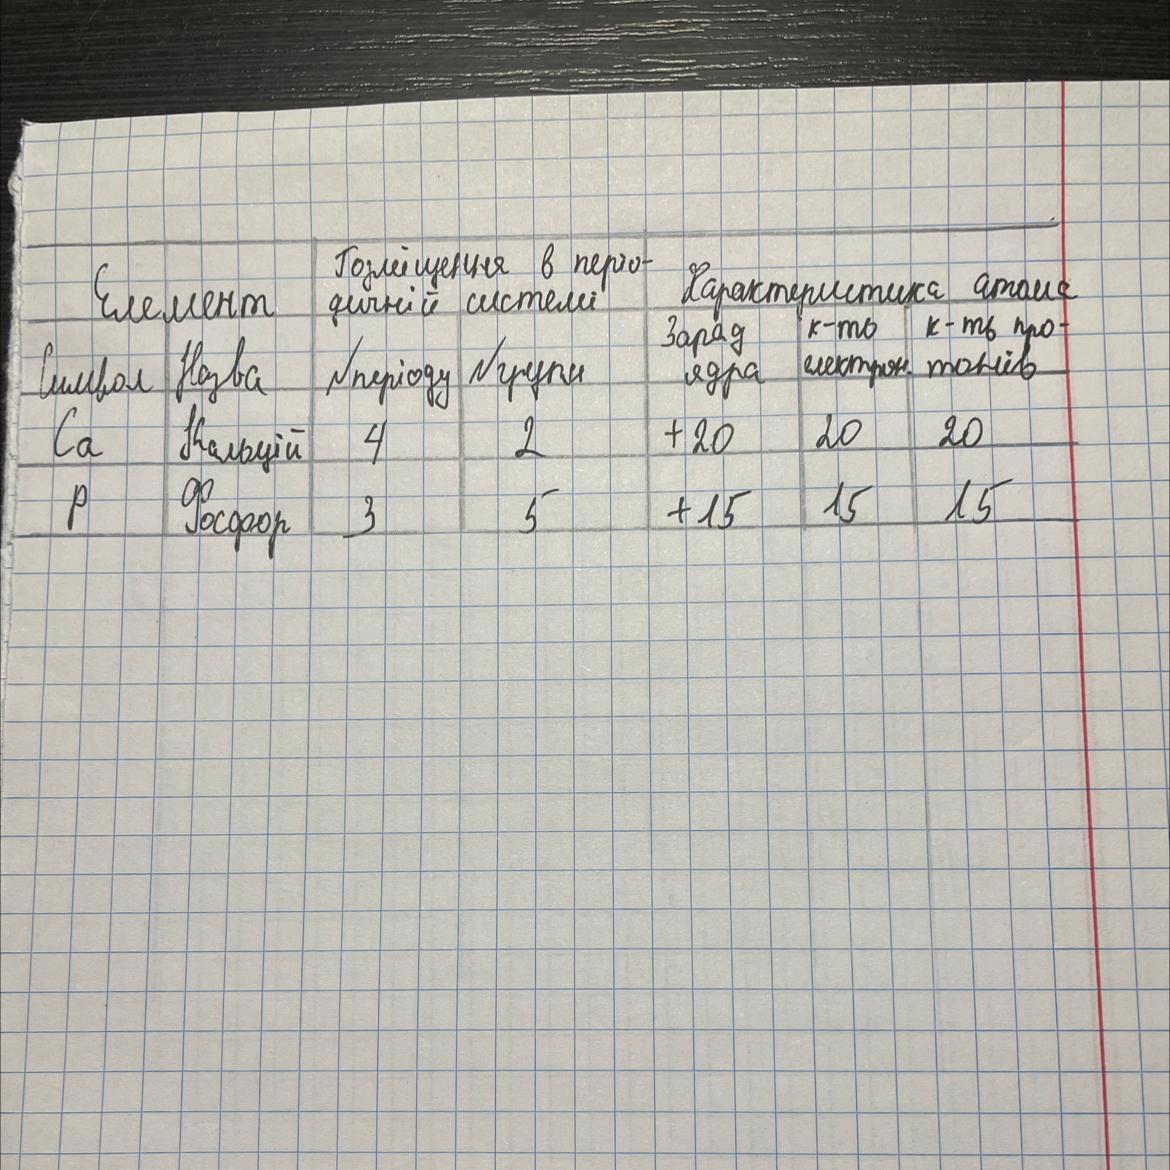 Елемент Розміщення в періо- Характеристика атома
дичній системі
Символ Назва №періоду №групи Заряд ядра к-ть електрон. к-ть про-тонів
Ca Кальцій 4 2 +20 20 20
P Фосфор 3 5 +15 15 15